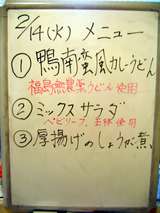 2/14(火) メニュー
① 鴨南蛮風カレーうどん
福島無農薬うどん使用
② ミックスサラダ
ベビリーブ、玉体使用
③ 厚揚げのしょうが煮